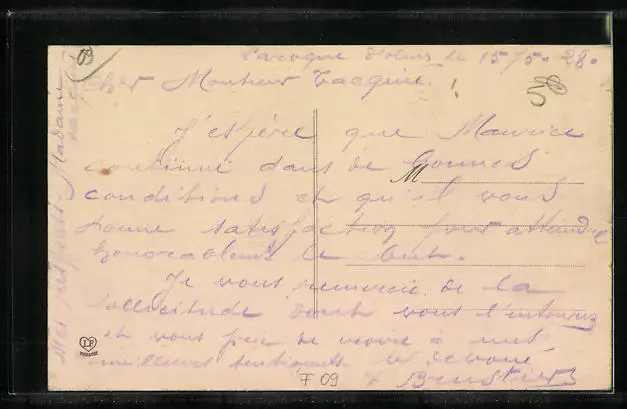 Laroque d'olmes le 15/5-28-
Cher Monsieur Tacquié!
J'espère que Maurice
continue dans de bonnes
conditions et qu'il vous
donne satisfaction pour attendre
honorablement le but.
Je vous remercie de la
sollicitude dont vous l'entourez
et vous prie de croire à mes
meilleurs sentiments
Mes respects à Madame
M
09
50
LF
TOULOUSE
F 09